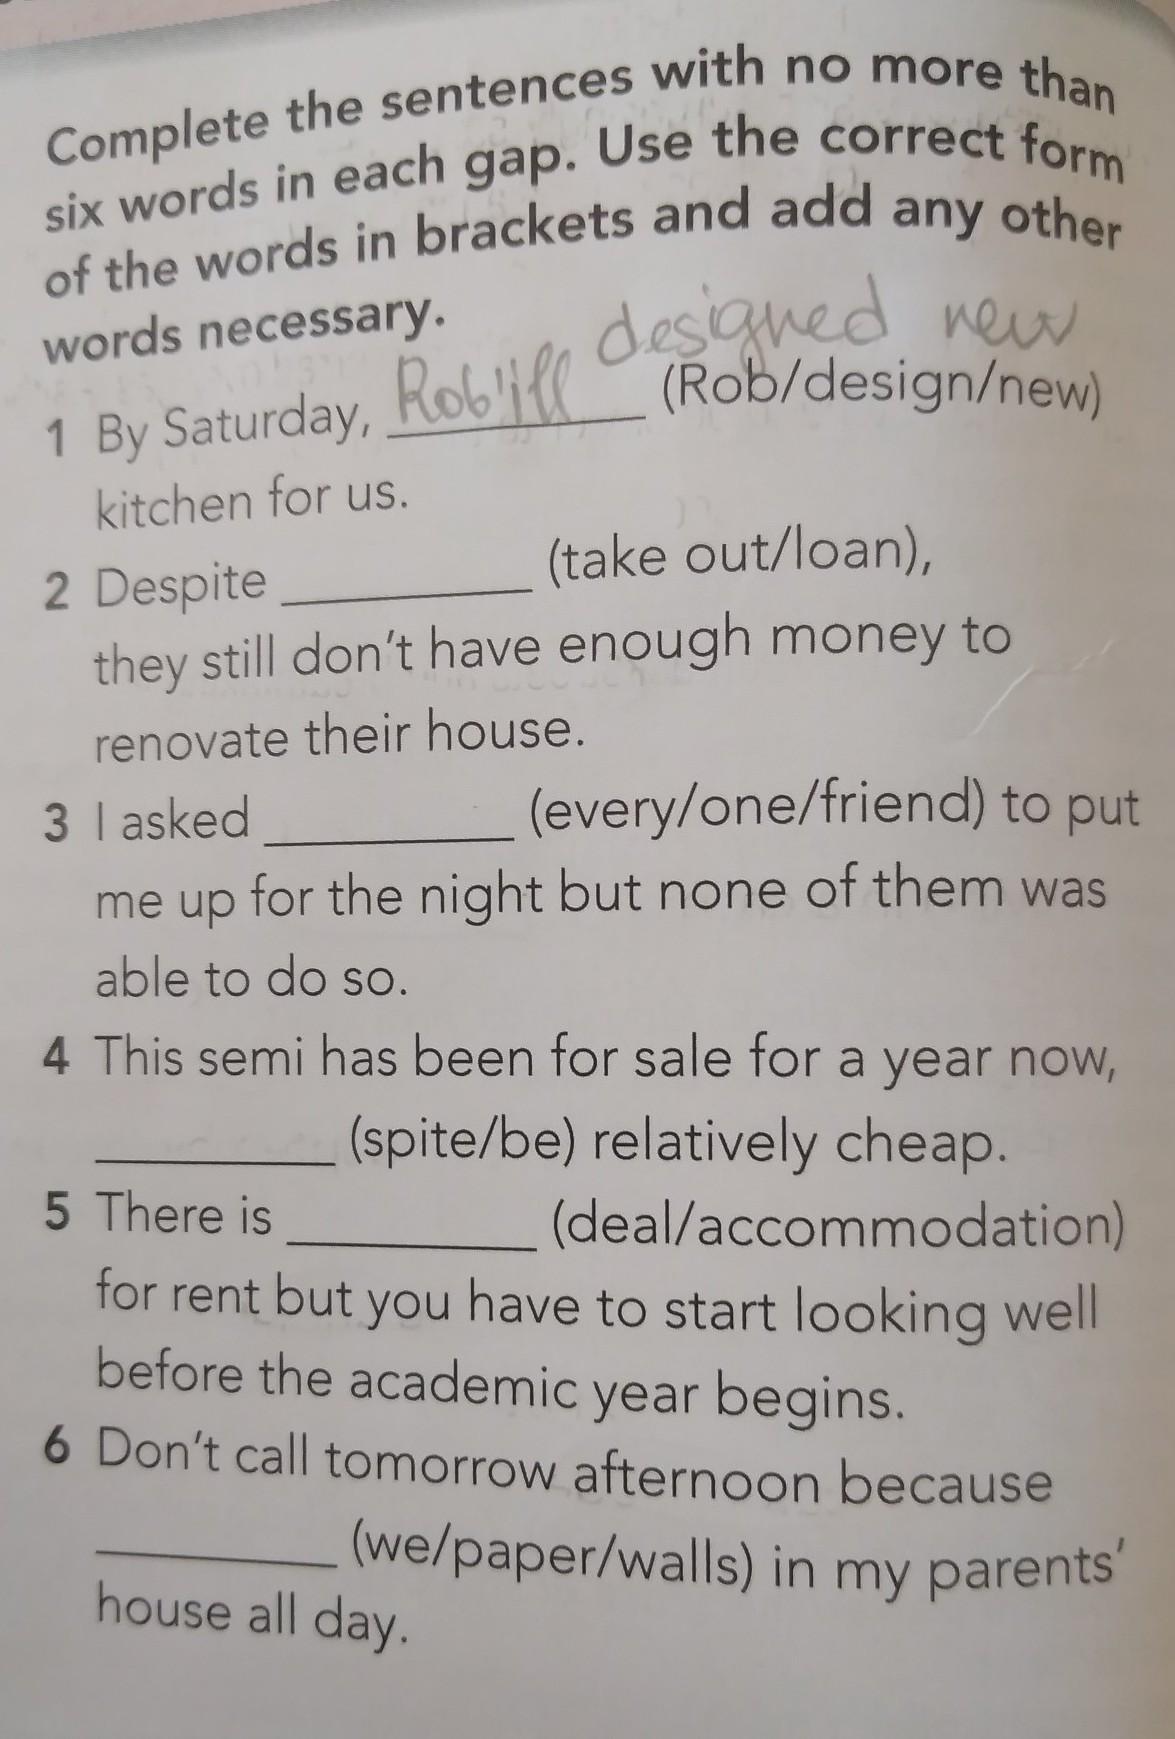 Complete the sentences with no more than
six words in each gap. Use the correct form
of the words in brackets and add any other
words necessary.
designed new
1 By Saturday, Rob'ill (Rob/design/new)
kitchen for us.
2 Despite (take out/loan),
they still don't have enough money to
renovate their house.
3 I asked (every/one/friend) to put
me up for the night but none of them was
able to do so.
4 This semi has been for sale for a year now,
(spite/be) relatively cheap.
5 There is (deal/accommodation)
for rent but you have to start looking well
before the academic year begins.
6 Don't call tomorrow afternoon because
(we/paper/walls) in my parents'
house all day.